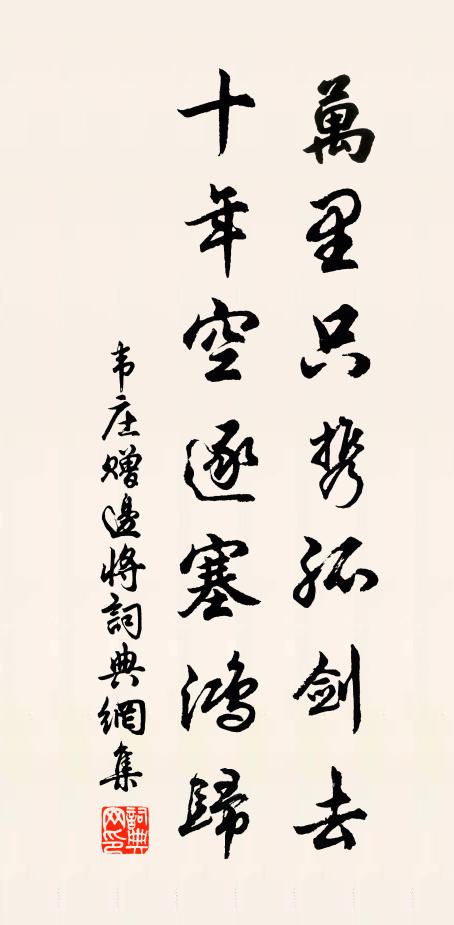 萬里只携孤剑去
十年空逐塞鴻歸
韦庄赠邊将詞典網集
詞典网印